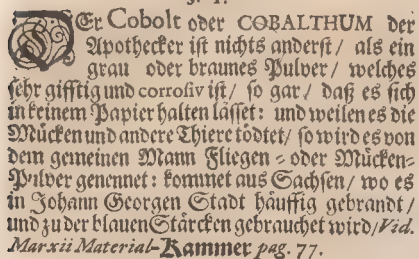 DEr Cobolt oder COBALTHUM der
Apothecker ist nichts anderst / als ein
grau oder braunes Pulver / welches
sehr gifftig und corrosiv ist / so gar / daß es sich
in keinem Papier halten lässet: und weilen es die
Mücken und andere Thiere tödtet / so wird es von
dem gemeinen Mann Fliegen- oder Mücken-
Pulver genennet: kommet aus Sachsen / wo es
in Johann Georgen Stadt häuffig gebrandt /
und zu der blauen Stärcken gebrauchet wird / Vid.
Marxii Material-Kammer pag. 77.